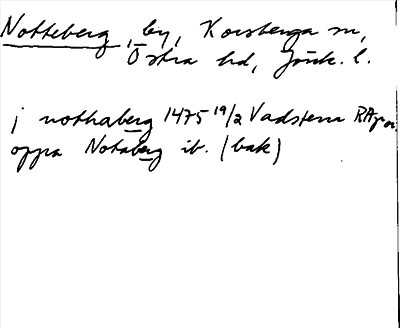 Notteberg, by, Korsberga sn,
Östra hd, Jönk. l.
j nothaberg 1475 19/2 Vadstena RAp or
oppa Notaberg ib. (bak)